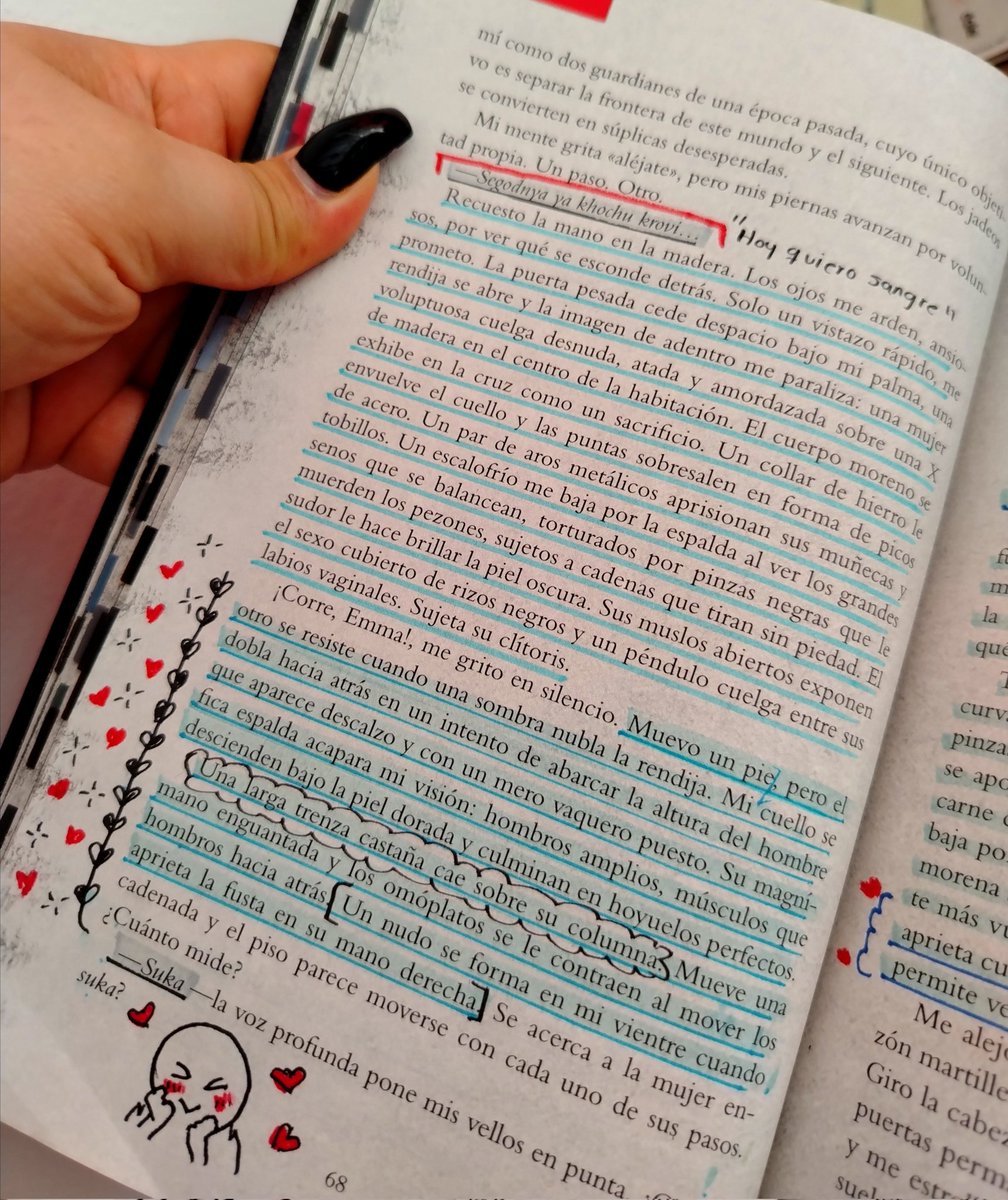 mí como dos guardianes de una época pasada, cuyo único objeti-
vo es separar la frontera de este mundo y el siguiente. Los jadeos
se convierten en súplicas desesperadas.
Mi mente grita «aléjate», pero mis piernas avanzan por volun-
tad propia. Un paso. Otro.
—Segodnya ya khochu krovi...
"Hoy quiero sangre"
Recuesto la mano en la madera. Los ojos me arden, ansio-
sos, por ver qué se esconde detrás. Solo un vistazo rápido, me
prometo. La puerta pesada cede despacio bajo mi palma, una
rendija se abre y la imagen de adentro me paraliza: una mujer
voluptuosa cuelga desnuda, atada y amordazada sobre una X
de madera en el centro de la habitación. El cuerpo moreno se
exhibe en la cruz como un sacrificio. Un collar de hierro le
envuelve el cuello y las puntas sobresalen en forma de picos
de acero. Un par de aros metálicos aprisionan sus muñecas y
tobillos. Un escalofrío me baja por la espalda al ver los grandes
senos que se balancean, torturados por pinzas negras que le
muerden los pezones, sujetos a cadenas que tiran sin piedad. El
sudor le hace brillar la piel oscura. Sus muslos abiertos exponen
el sexo cubierto de rizos negros y un péndulo cuelga entre sus
labios vaginales. Sujeta su clítoris.
¡Corre, Emma!, me grito en silencio. Muevo un pie, pero el
otro se resiste cuando una sombra nubla la rendija. Mi cuello se
dobla hacia atrás en un intento de abarcar la altura del hombre
que aparece descalzo y con un mero vaquero puesto. Su magní-
fica espalda acapara mi visión: hombros amplios, músculos que
descienden bajo la piel dorada y culminan en hoyuelos perfectos.
Una larga trenza castaña cae sobre su columna. Mueve una
mano enguantada y los omóplatos se le contraen al mover los
hombros hacia atrás. Un nudo se forma en mi vientre cuando
aprieta la fusta en su mano derecha. Se acerca a la mujer en-
cadenada y el piso parece moverse con cada uno de sus pasos.
¿Cuánto mide?
—Suka —la voz profunda pone mis vellos en punta
suka?
68
la
qué
curv
pinza
se apo
carne
baja po
morena
te más vu
aprieta cu
permite ve
Me alej
zón martille
Giro la cabe
puertas perm
y me est